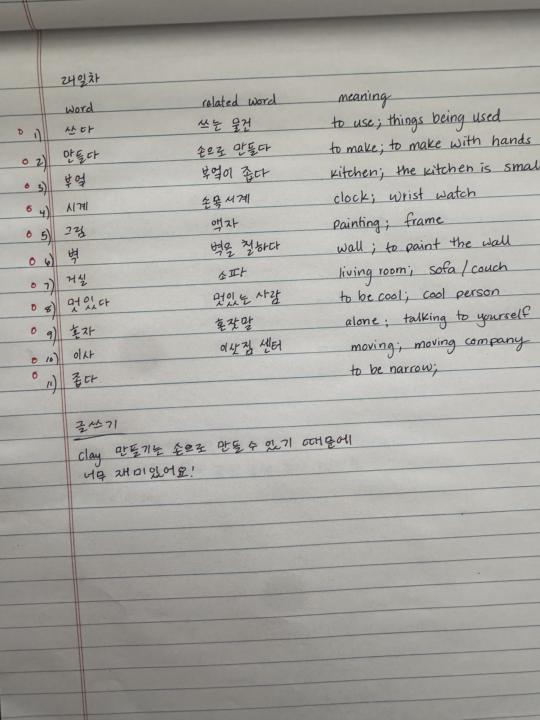 2번일차
word related word meaning
1) 쓰다 쓰는 물건 to use; things being used
2) 만들다 손으로 만들다 to make; to make with hands
3) 부엌 부엌이 좁다 kitchen; the kitchen is smal
4) 시계 손목시계 clock; wrist watch
5) 그림 액자 painting; frame
6) 벽 벽을 칠하다 wall; to paint the wall
7) 거실 소파 living room; sofa/couch
8) 멋있다 멋있는 사람 to be cool; cool person
9) 혼자 혼잣말 alone; talking to yourself
10) 이사 이삿짐 센터 moving; moving company
11) 좁다 to be narrow;
글쓰기
clay 만들기는 손으로 만들 수 있기 때문에
너무 재미있어요!